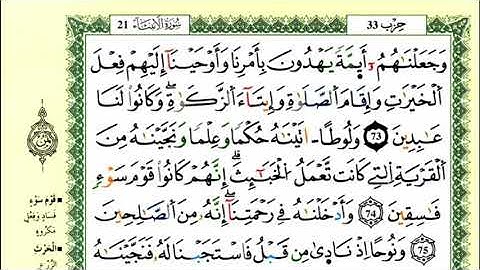 حِزْب 33
سُورَةُ الأَنبِيَاء 21
وَجَعَلْنَٰهُمُۥٓ أَيِمَّةٗ يَهْدُونَ بِأَمْرِنَا وَأَوْحَيْنَآ إِلَيْهِمْ فِعْلَ
اَ۬لْخَيْرَٰتِ وَإِقَامَ اَ۬لصَّلَوٰةِ وَإِيتَآءَ اَ۬لزَّكَوٰةِۖ وَكَانُواْ لَنَا
عَٰبِدِينَ 73 وَلُوطاً اٰتَيْنَٰهُ حُكْماٗ وَعِلْماٗ وَنَجَّيْنَٰهُ مِنَ
اَ۬لْقَرْيَةِ اِ۬لتِے كَانَت تَّعْمَلُ اُ۬لْخَبَٰٓئِثَۖ إِنَّهُمْ كَانُواْ قَوْمَ سَوْءٖ
فَٰسِقِينَ 74 وَأَدْخَلْنَٰهُ فِے رَحْمَتِنَآۖ إِنَّهُۥ مِنَ اَ۬لصَّٰلِحِينَ
75 وَنُوحاً اِذْ نَادَىٰ مِن قَبْلُ فَاسْتَجَبْنَا لَهُۥ فَنَجَّيْنَٰهُ
ثمن
قَوْمَ سَوْءٍ
فَسَادٍ وَفِعْلٍ
مَكْرُوهٍ
الْحَرْثِ
الزَّرْعِ